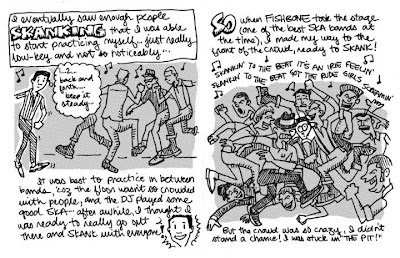 I eventually saw enough people
SKANKING that I was able
to start practicing myself. Just really
low-key and not so noticeably...
1...2...
back and
forth...
keep it
steady-
It was best to practice in between
bands, 'coz the floor wasn't so crowded
with people, and the DJ played some
good SKA-- after awhile, I thought I
was ready to really go out
there and SKANK with everyone!
SO when FISHBONE took the stage
(one of the best SKA bands at
the time), I made my way to the
front of the crowd, ready to SKANK!
SKANKIN' TO THE BEAT IT'S AN IRIE FEELIN'
SKANKIN' TO THE BEAT GOT THE RUDE GIRLS SCREAMIN'
But the crowd was so crazy, I didn't
stand a chance! I was stuck in "THE PIT!"